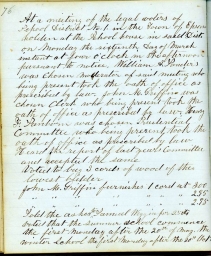 76
At a meeting of the legal voters of
School District No 1 in the Town of Epsom
holden at the School House in said Dist
on Monday the sixteenth day of March
instant at four o'clock in the afternoon
pursuant to notice, William
was chosen moderator of said meeting who
being present took the oath of office as
prescribed by law. John M. Griffin was
chosen Clerk who being present took the
oath of office as prescribed by law. Henry
was chosen Prudential
Committee, who being present took the
oath of office as prescribed by law
Heard the report of last year's Committee
and accepted the same
Voted to buy 3 cords of wood of the
lowest bidder
John M. Griffin furnishes 1 cord at 3.00
Sold the ashes Samuel 25 cts
Voted that the summer school commence
the first Monday after the 20th of May. The
winter School the first Monday after the 20th Oct